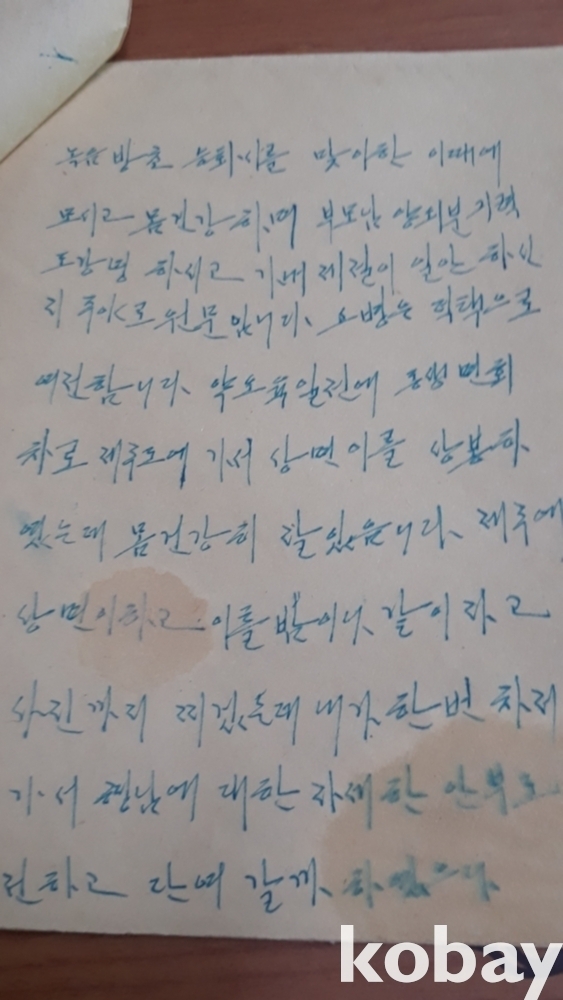 녹음방초 승회시를 맞이한 이때에
모시고 몸건강 하며 부모님 양외분 기력
도강녕 하시고 기내 제절이 일안 하신
지 원문입니다. 요병은 덕택으로
여전합니다. 약 일전에 동생 면회
차로 제주도에 가서 상면이를 상봉하
였는데 몸건강히 잘있읍니다. 제주에
상면이하고 이틀밤이나 같이자고
사진까지 찌겄는데 내가 한번 차저
가서 형님에 대한 자세한 안부도
전하고 단여 갈까 하였으나
kobay